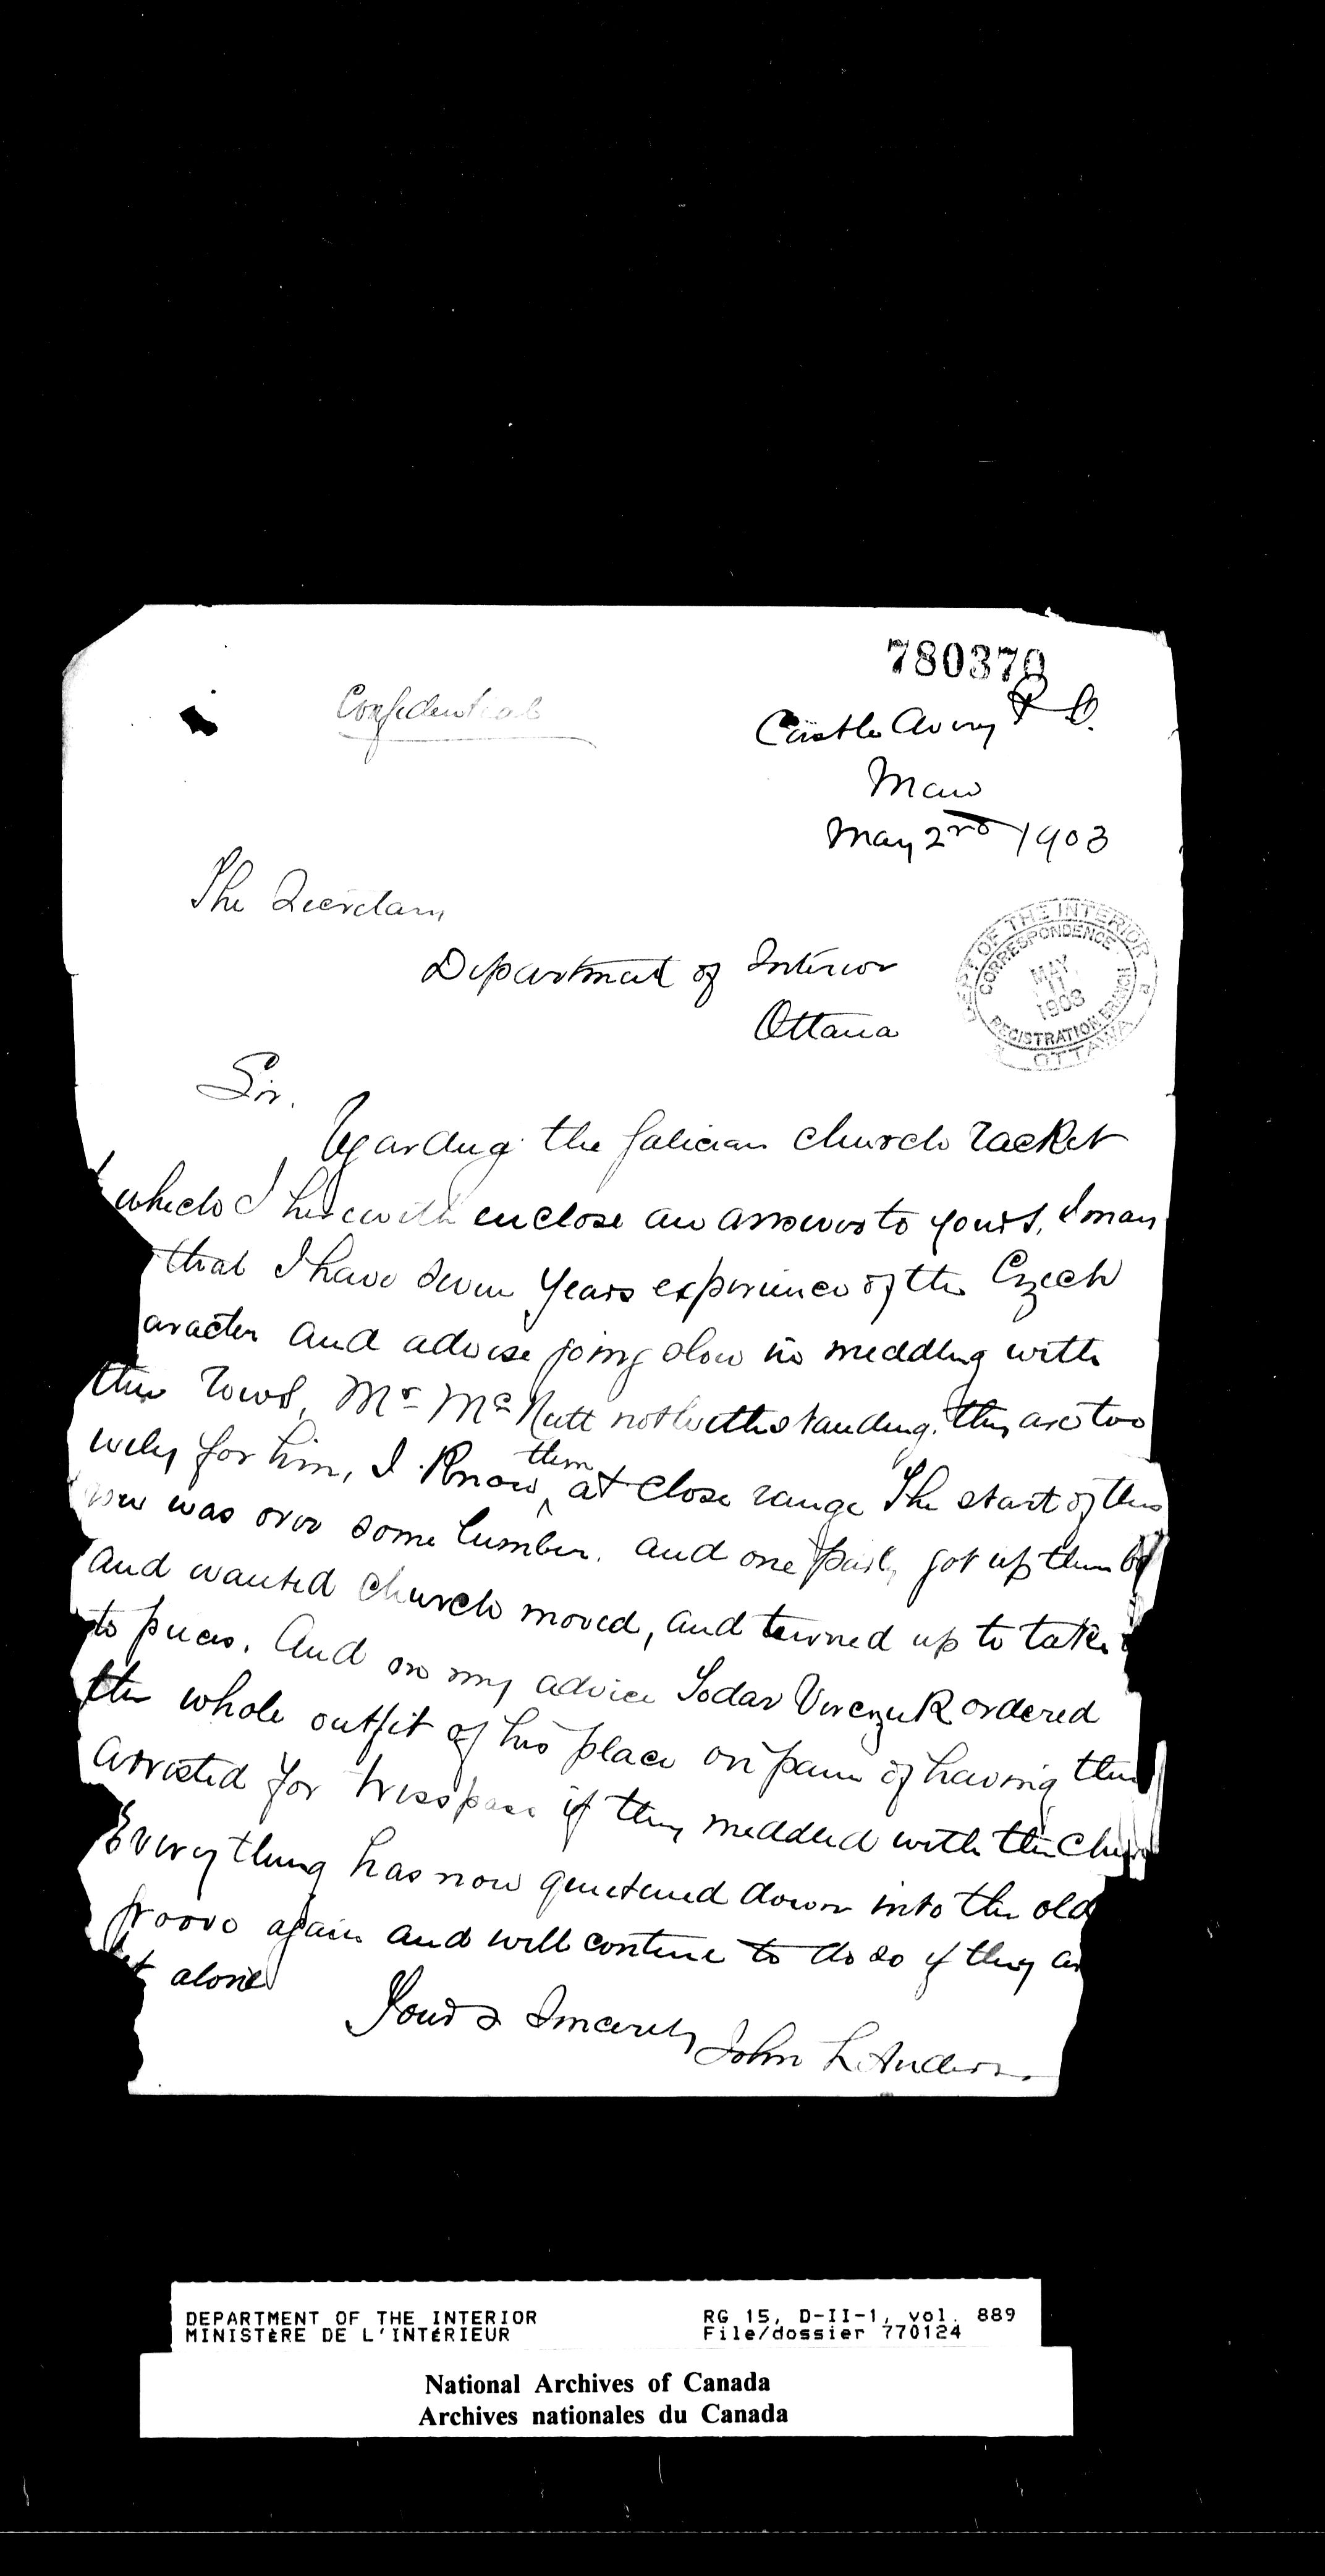 780370
Confidential
Castle Avery P.O.
Man
May 2nd 1903
The Secretary
Department of Interior
Ottawa
DEPT OF THE INTERIOR
CORRESPONDENCE
MAY
11
1903
REGISTRATION BRANCH
OTTAWA
Sir.
Regarding the Galician church racket
which I herewith enclose an answer to yours, I may
that I have seven years experience of the Czech
aracter and advise going slow in meddling with
their rows, Mr McNutt notwithstanding. they are too
wily for him, I know them at close range The start of this
row was over some lumber. and one party got up there
and wanted church moved, and turned up to take
to pieces. And on my advice Todar Verczuk ordered
the whole outfit of his place on pain of having them
arrested for tresspass if they meddled with the Chur
Everything has now quietened down into the old
groove again and will contine to do so if they are
alone
Yours Sincerely John L. Anderson
DEPARTMENT OF THE INTERIOR RG 15, D-II-1, vol. 889
MINISTÈRE DE L'INTÉRIEUR File/dossier 770124
National Archives of Canada
Archives nationales du Canada